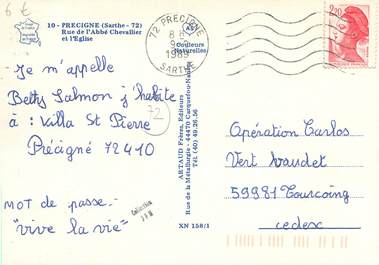 6 €
10 - PRECIGNE (Sarthe - 72)
Rue de l'Abbé Chevallier
et l'Eglise
Couleurs
Naturelles
72 PRECIGNE
8 8
1989
SARTHE
2,20
Je m'appelle
Betty Salmon j'habite
à : Villa St Pierre
Précigné 72410
72
MOT de passe.
"vive la vie"
Collection
ARTAUD Frères, Editeurs
Rue de la Métallurgie - 44470 Carquefou-Nantes
Tél. (40) 49.28.56
XN 158/1
Opération Carlos
Vert baudet
59981 Tourcoing
cedex